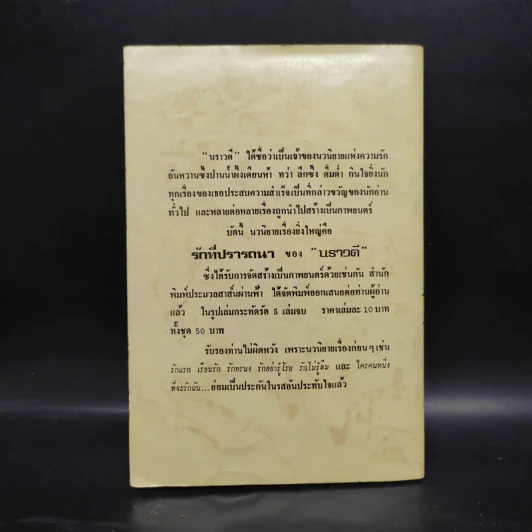 "นราวดี" ได้ชื่อว่าเป็นเจ้าของนวนิยายแห่งความรัก
อันหวานซึ้งปานน้ำผึ้งเดือนห้า ทว่า ลึกซึ้ง ดื่มด่ำ กินใจยิ่งนัก
ทุกเรื่องของเธอประสบความสำเร็จเป็นที่กล่าวขวัญของนักอ่าน
ทั่วไป และหลายต่อหลายเรื่องถูกนำไปสร้างเป็นภาพยนตร์
บัดนี้ นวนิยายเรื่องยิ่งใหญ่คือ
รักที่ปรารถนา ของ "นราวดี"
ซึ่งได้รับการจัดสร้างเป็นภาพยนตร์ด้วยเช่นกัน สำนัก
พิมพ์ประมวลสาส์นผ่านฟ้า ได้จัดพิมพ์ออกเสนอต่อท่านผู้อ่าน
แล้ว ในรูปเล่มกระทัดรัด 5 เล่มจบ ราคาเล่มละ 10 บาท
ทั้งชุด 50 บาท
รับรองท่านไม่ผิดหวัง เพราะนวนิยายเรื่องก่อนๆ เช่น
รักแรก เรือนรัก รักทรนง รักอย่ารู้โรย รักไม่รู้ลืม และ ใครคนหนึ่ง
ที่จะรักฉัน...ย่อมเป็นประกันในรสอันประทับใจแล้ว